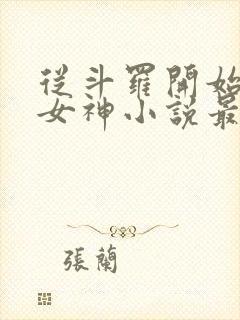 從斗羅開始
女神小說最
張蘭